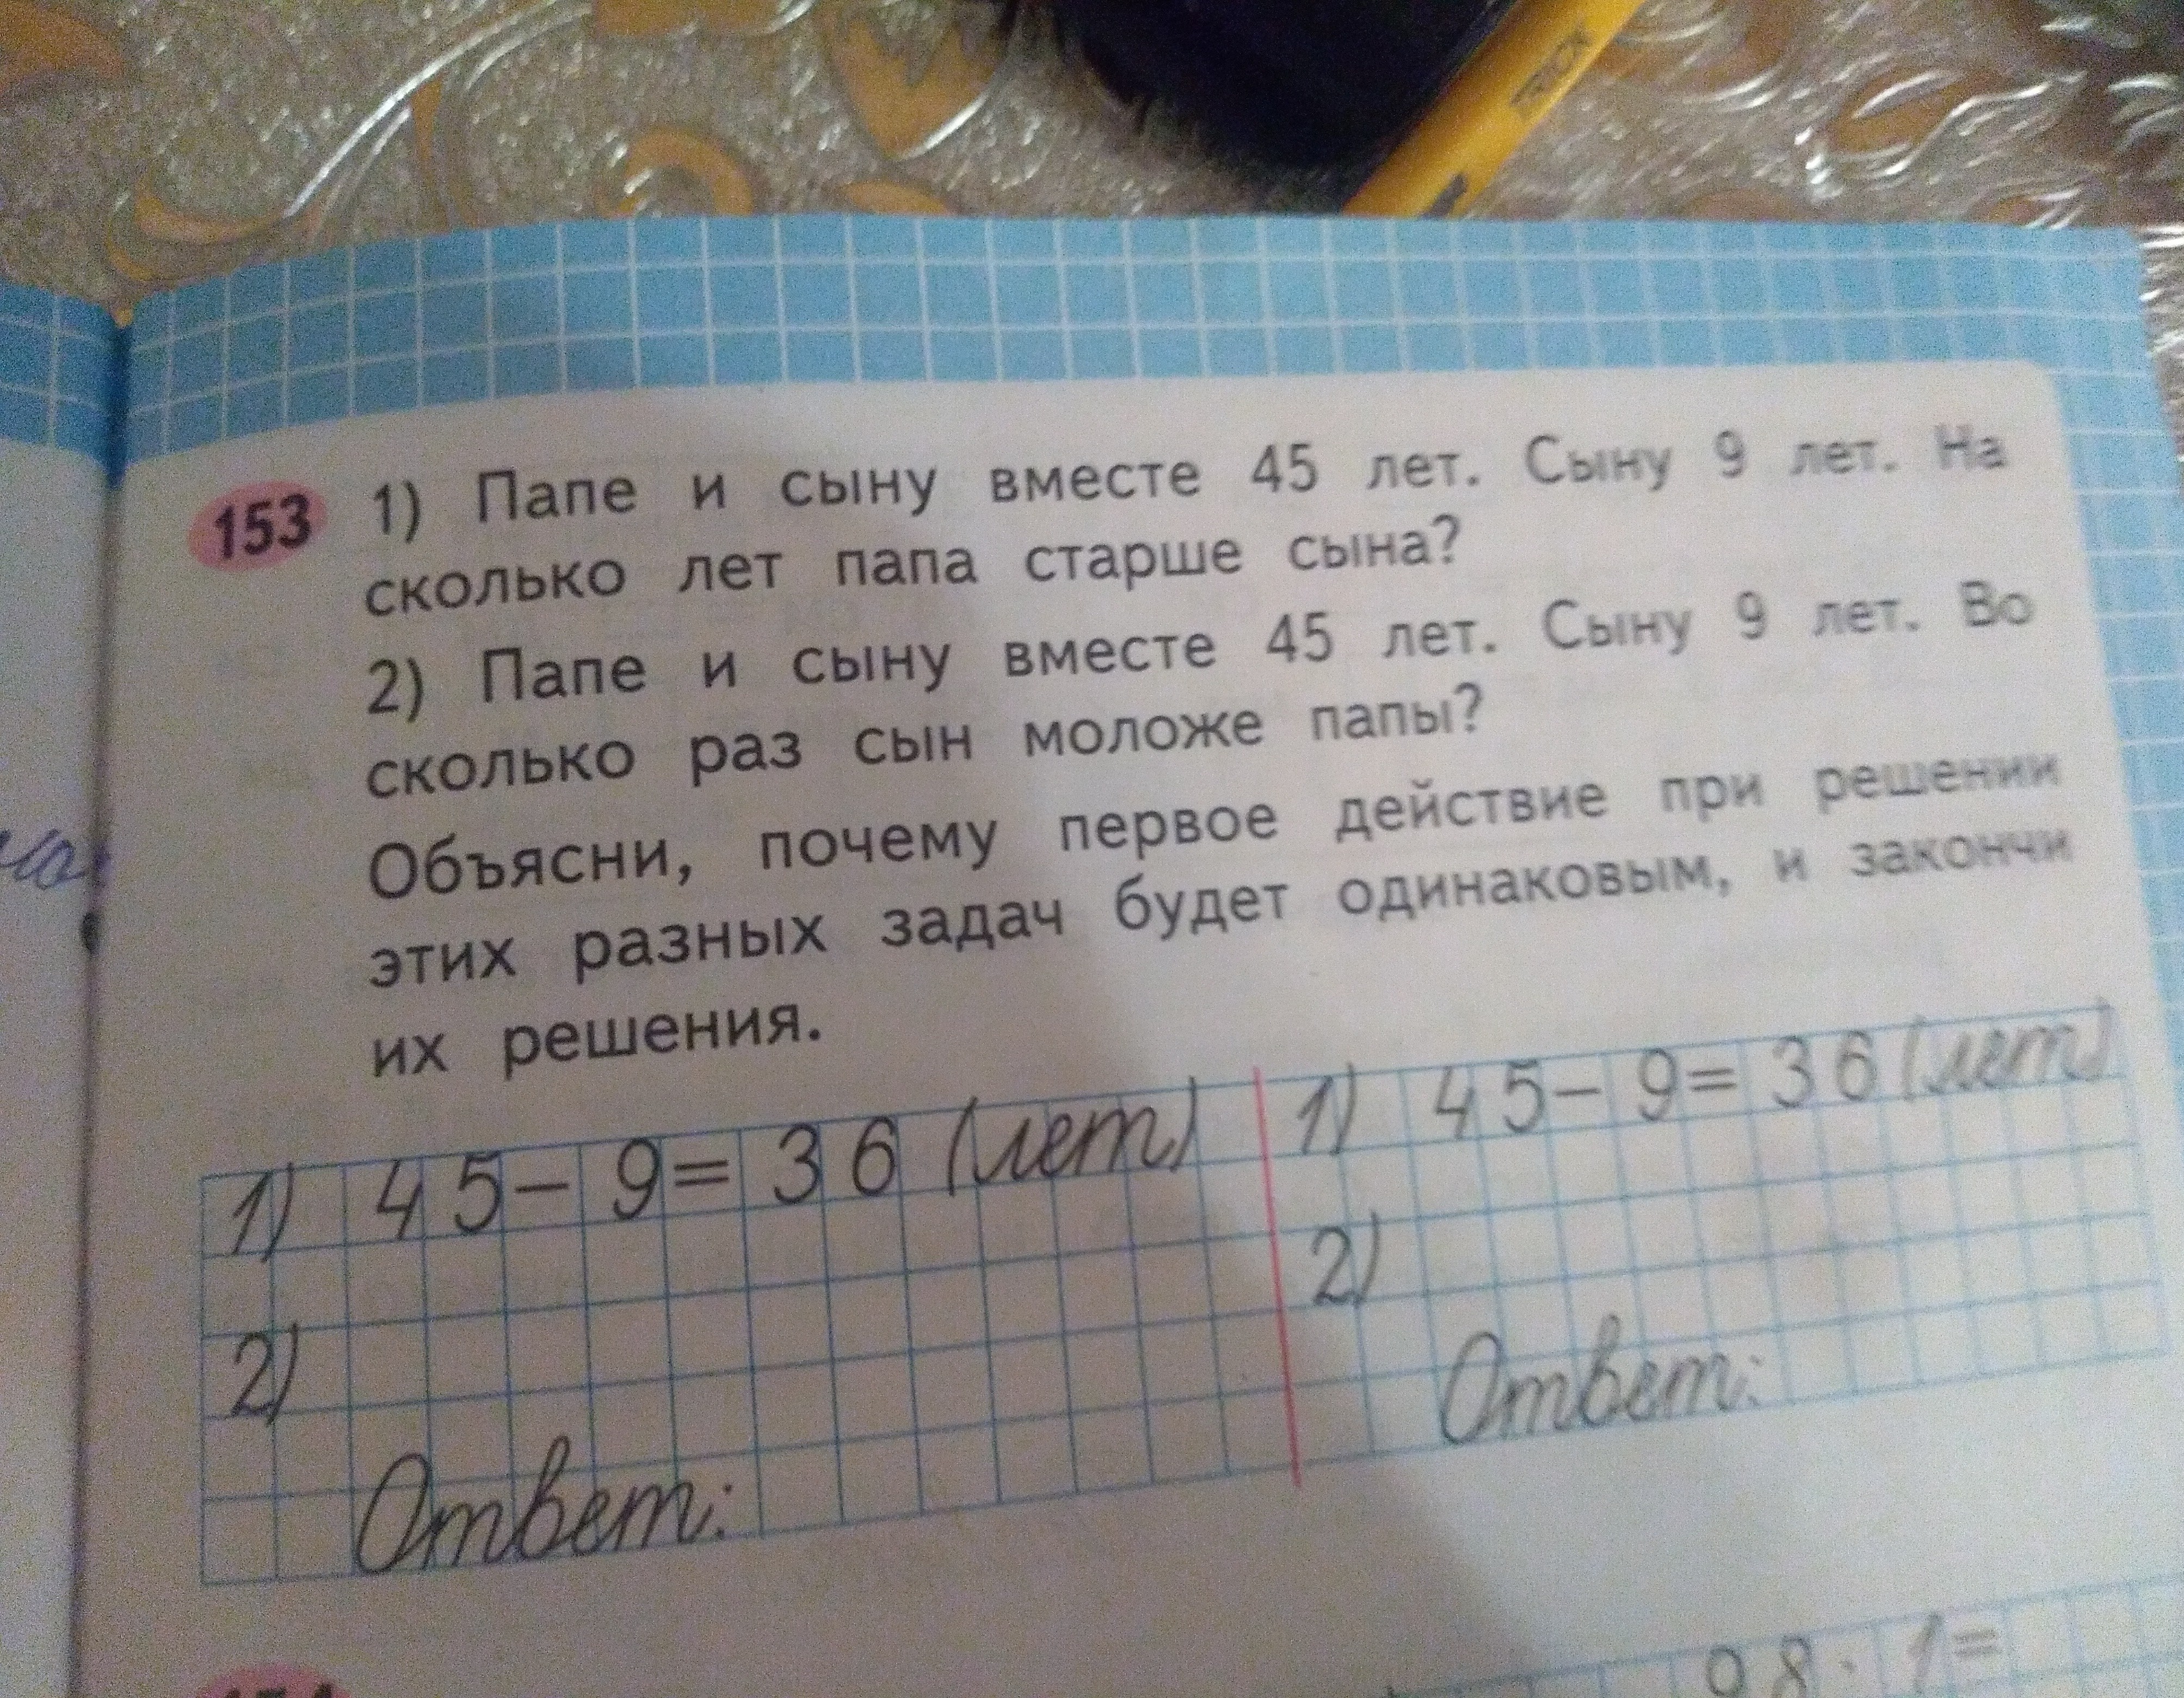 TRICK
153 1) Папе и сыну вместе 45 лет. Сыну 9 лет. На
сколько лет папа старше сына?
2) Папе и сыну вместе 45 лет. Сыну 9 лет. Во
сколько раз сын моложе папы?
Объясни, почему первое действие при решении
этих разных задач будет одинаковым, и закончи
их решения.
1) 45-9=36 (лет)
2)
Ответ:
1) 45-9=36 (лет)
2)
Ответ:
98·1=